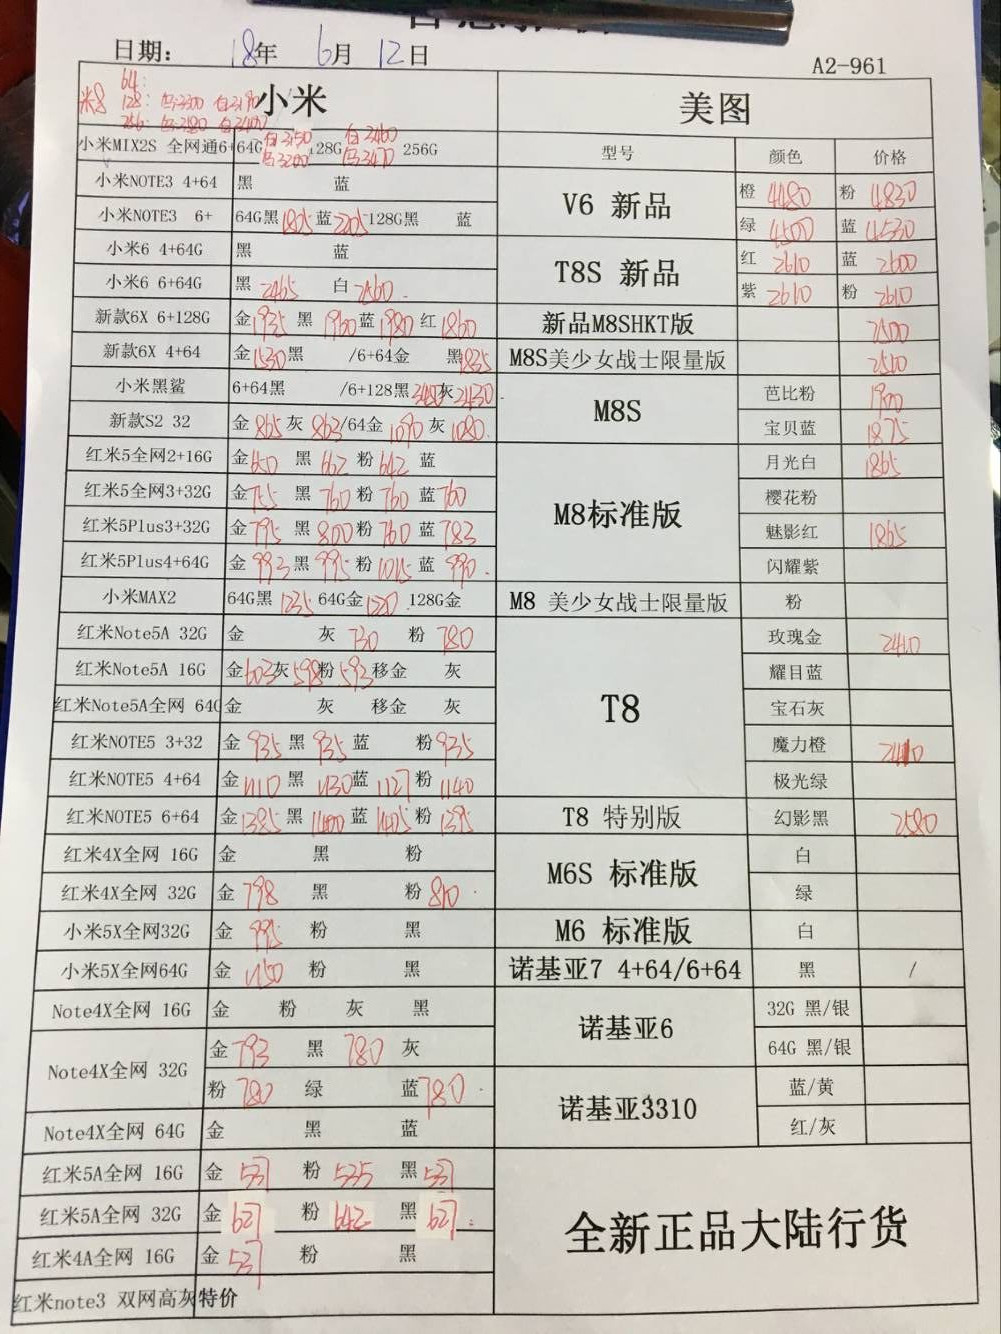 日期: 18年 6月 12日
A2-961
小米
美图
米8 64:
128:
256:
小米MIX2S 全网通6+ 64G 白3150 128G 白3460 256G
型号 颜色 价格
小米NOTE3 4+64 黑 蓝
V6 新品 橙 4480 粉 4830
小米NOTE3 6+ 64G黑 1805 蓝 2005 128G黑 蓝
绿 4500 蓝 4530
小米6 4+64G 黑 蓝
T8S 新品 红 2610 蓝 2600
小米6 6+64G 黑 2465 白 2560
紫 2610 粉 2610
新款6X 6+128G 金 1935 黑 1960 蓝 1980 红 1860
新品M8SHKT版 2500
新款6X 4+64 金 1530 黑 /6+64金 黑 1835
M8S美少女战士限量版 2510
小米黑鲨 6+64黑 /6+128黑 灰 3430
M8S 芭比粉 1900
新款S2 32 金 865 灰 863 /64金 1090 灰 1080
宝贝蓝 1875
红米5全网2+16G 金 650 黑 662 粉 642 蓝
M8标准版 月光白 1865
红米5全网3+32G 金 755 黑 760 粉 760 蓝 760
樱花粉
红米5Plus3+32G 金 795 黑 800 粉 760 蓝 783
魅影红 1865
红米5Plus4+64G 金 993 黑 995 粉 1015 蓝 990
闪耀紫
小米MAX2 64G黑 1235 64G金 1220 128G金
M8 美少女战士限量版 粉
红米Note5A 32G 金 灰 730 粉 780
T8 玫瑰金 2410
红米Note5A 16G 金 603 灰 598 粉 593 移金 灰
耀目蓝
红米Note5A全网 64G 金 灰 移金 灰
宝石灰
红米NOTE5 3+32 金 935 黑 935 蓝 粉 935
魔力橙 2410
红米NOTE5 4+64 金 1110 黑 1130 蓝 1127 粉 1140
极光绿
红米NOTE5 6+64 金 1385 黑 1400 蓝 1405 粉 1395
T8 特别版 幻影黑 2580
红米4X全网 16G 金 黑 粉
M6S 标准版 白
红米4X全网 32G 金 798 黑 粉 810
绿
小米5X全网32G 金 995 粉 黑
M6 标准版 白
小米5X全网64G 金 1150 粉 黑
诺基亚7 4+64/6+64 黑 /
Note4X全网 16G 金 粉 灰 黑
诺基亚6 32G 黑/银
Note4X全网 32G 金 793 黑 780 灰
64G 黑/银
粉 780 绿 蓝 780
诺基亚3310 蓝/黄
Note4X全网 64G 金 黑 蓝
红/灰
红米5A全网 16G 金 537 粉 535 黑 537
红米5A全网 32G 金 627 粉 642 黑 627
全新正品大陆行货
红米4A全网 16G 金 537 粉 黑
红米note3 双网高灰特价